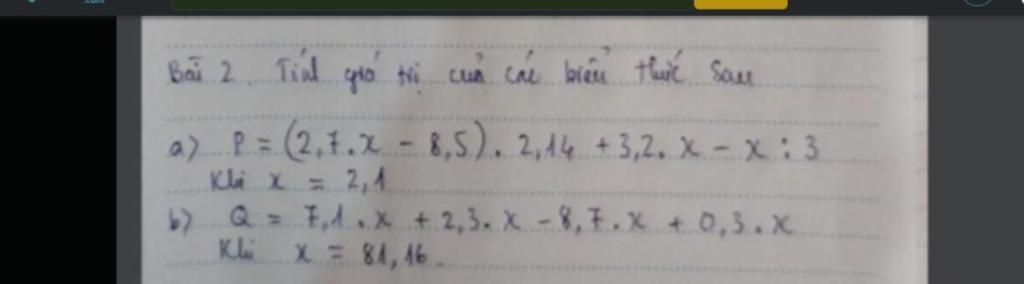 .com
Bài 2. Tính giá trị của các biểu thức sau
a) P = (2,7.x - 8,5). 2,14 + 3,2. x - x : 3
Khi x = 2,1
b) Q = 7,1.x + 2,3.x - 8,7.x + 0,3.x
Khi x = 81,16.